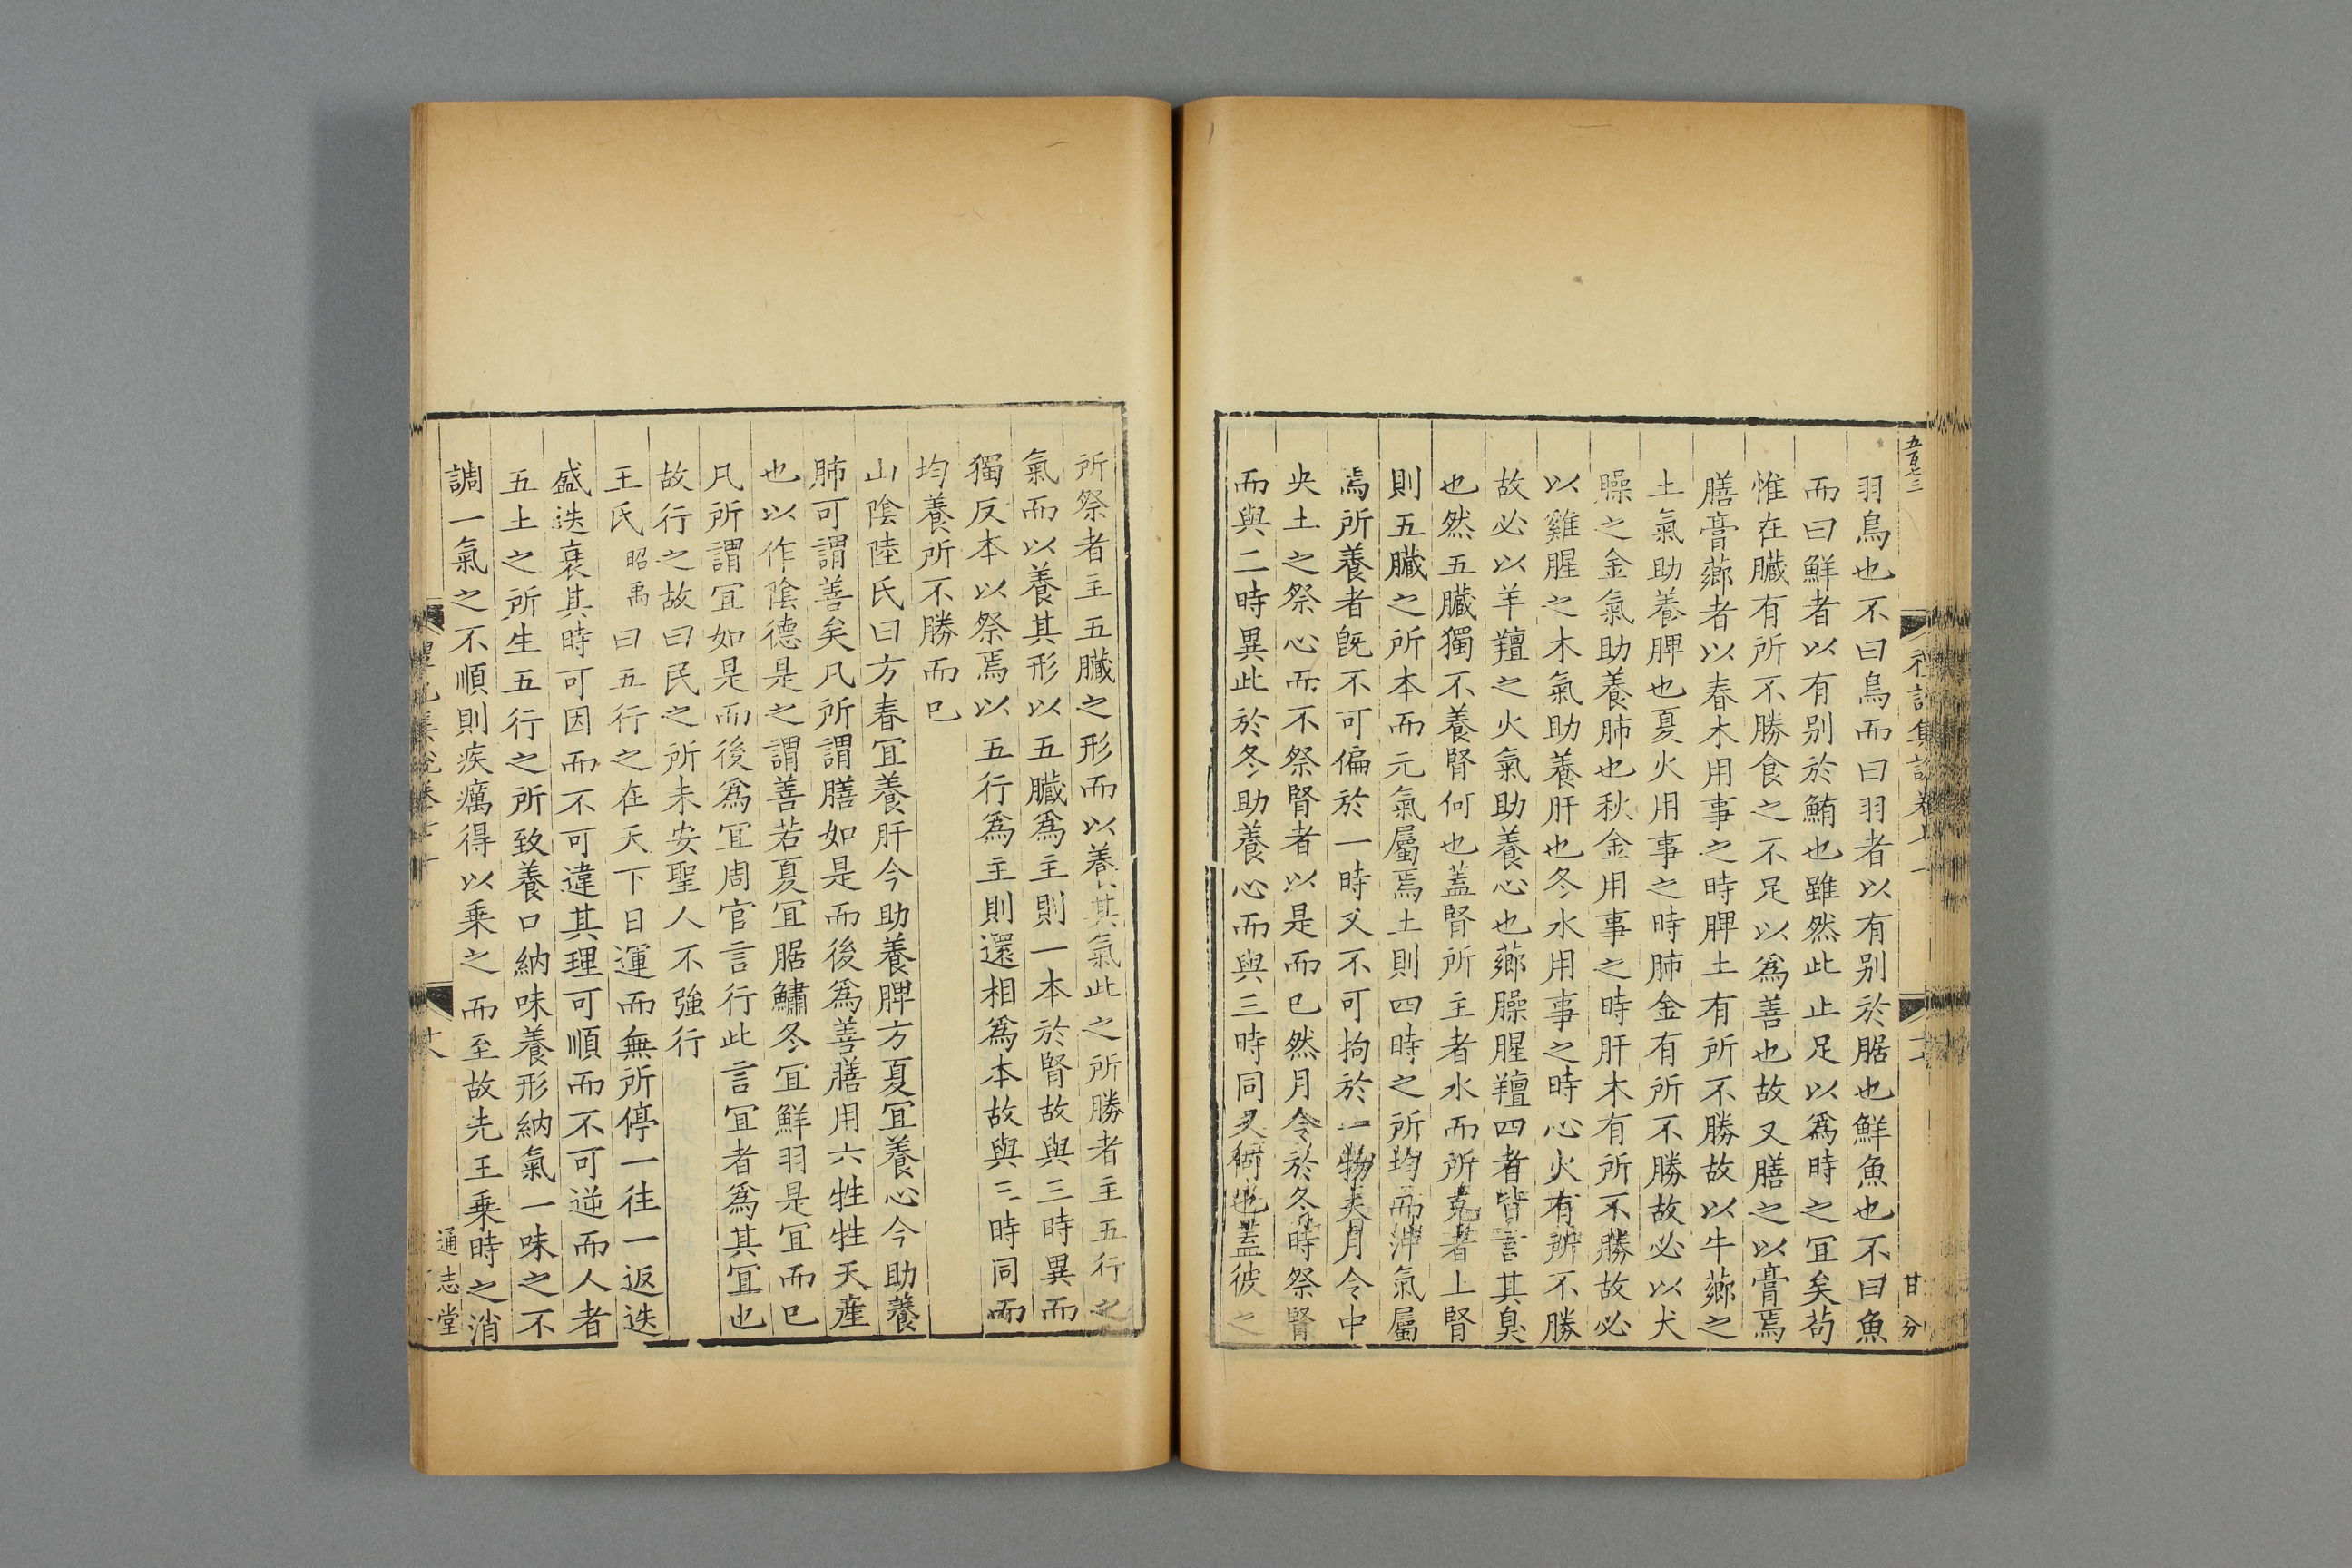 五百七三
羽鳥也不曰鳥而曰羽者以有别於腒也鮮魚也不曰魚
而曰鮮者以有别於鮪也雖然此止足以爲時之冝矣茍
惟在臟有所不勝食之不足以爲善也故又膳之以膏焉
膳膏薌者以春木用事之時脾土有所不勝故以牛薌之
土氣助養脾也夏火用事之時肺金有所不勝故必以犬
臊之金氣助養肺也秋金用事之時肝木有所不勝故必
以雞腥之木氣助養肝也冬水用事之時心火有所不勝
故必以羊羶之火氣助養心也薌臊腥羶四者皆言其臭
也然五臟獨不養腎何也蓋腎所主者水而所克者上腎
則五臟之所本而元氣屬焉土則四時之所均而沖氣屬
焉所養者旣不可偏於一時又不可拘於一物矣月令中
央土之祭心而不祭腎者以是而已然月令於冬時祭腎
而與二時異此於冬助養心而與三時同又何也蓋彼之
禮記集說卷
甘分
所祭者主五臟之形而以養其氣此之所勝者主五行之
氣而以養其形以五臟爲主則一本於腎故與三時異而
獨反本以祭焉以五行爲主則還相爲本故與三時同而
均養所不勝而已
山陰陸氏曰方春冝養肝今助養脾方夏冝養心今助養
肺可謂善矣凡所謂膳如是而後爲善膳用六牲牲天産
也以作陰德是之謂善若夏冝腒鱐冬冝鮮羽是冝而已
凡所謂冝如是而後爲冝周官言行此言冝者爲其冝也
故行之故曰民之所未安聖人不強行
王氏昭禹曰五行之在天下日運而無所停一往一返迭
盛迭衰其時可因而不可違其理可順而不可逆而人者
五土之所生五行之所致養口納味養形納氣一味之不
調一氣之不順則疾癘得以乗之而至故先王乗時之消
禮記集說卷
通志堂